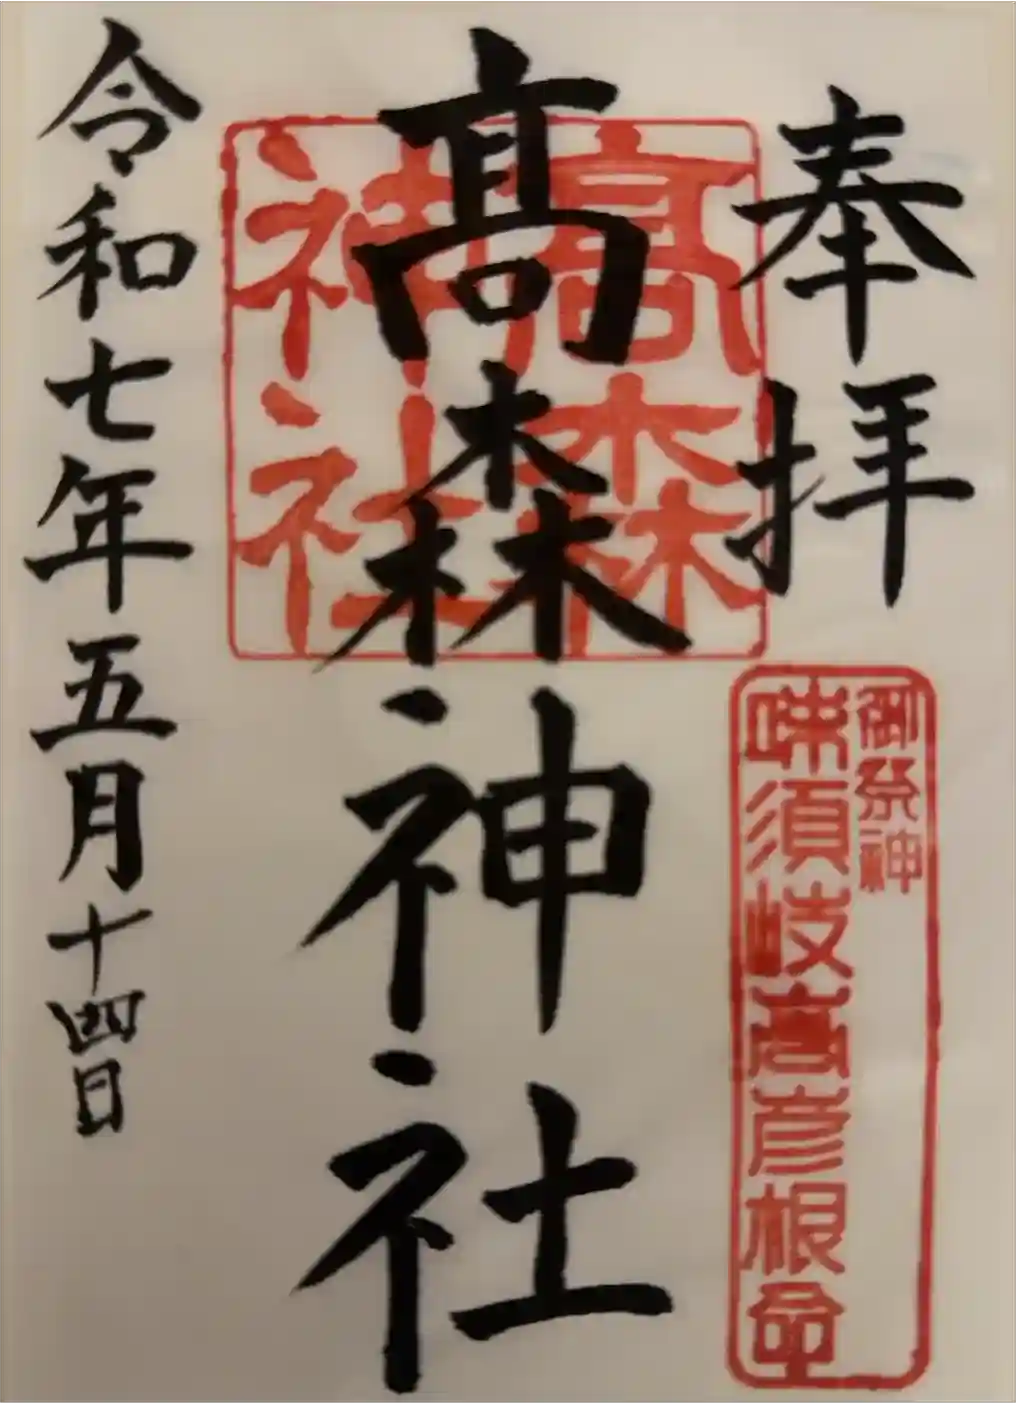 奉拝
髙森神社
髙森
神社
御祭神
味須岐高彦根命
令和七年五月十四日